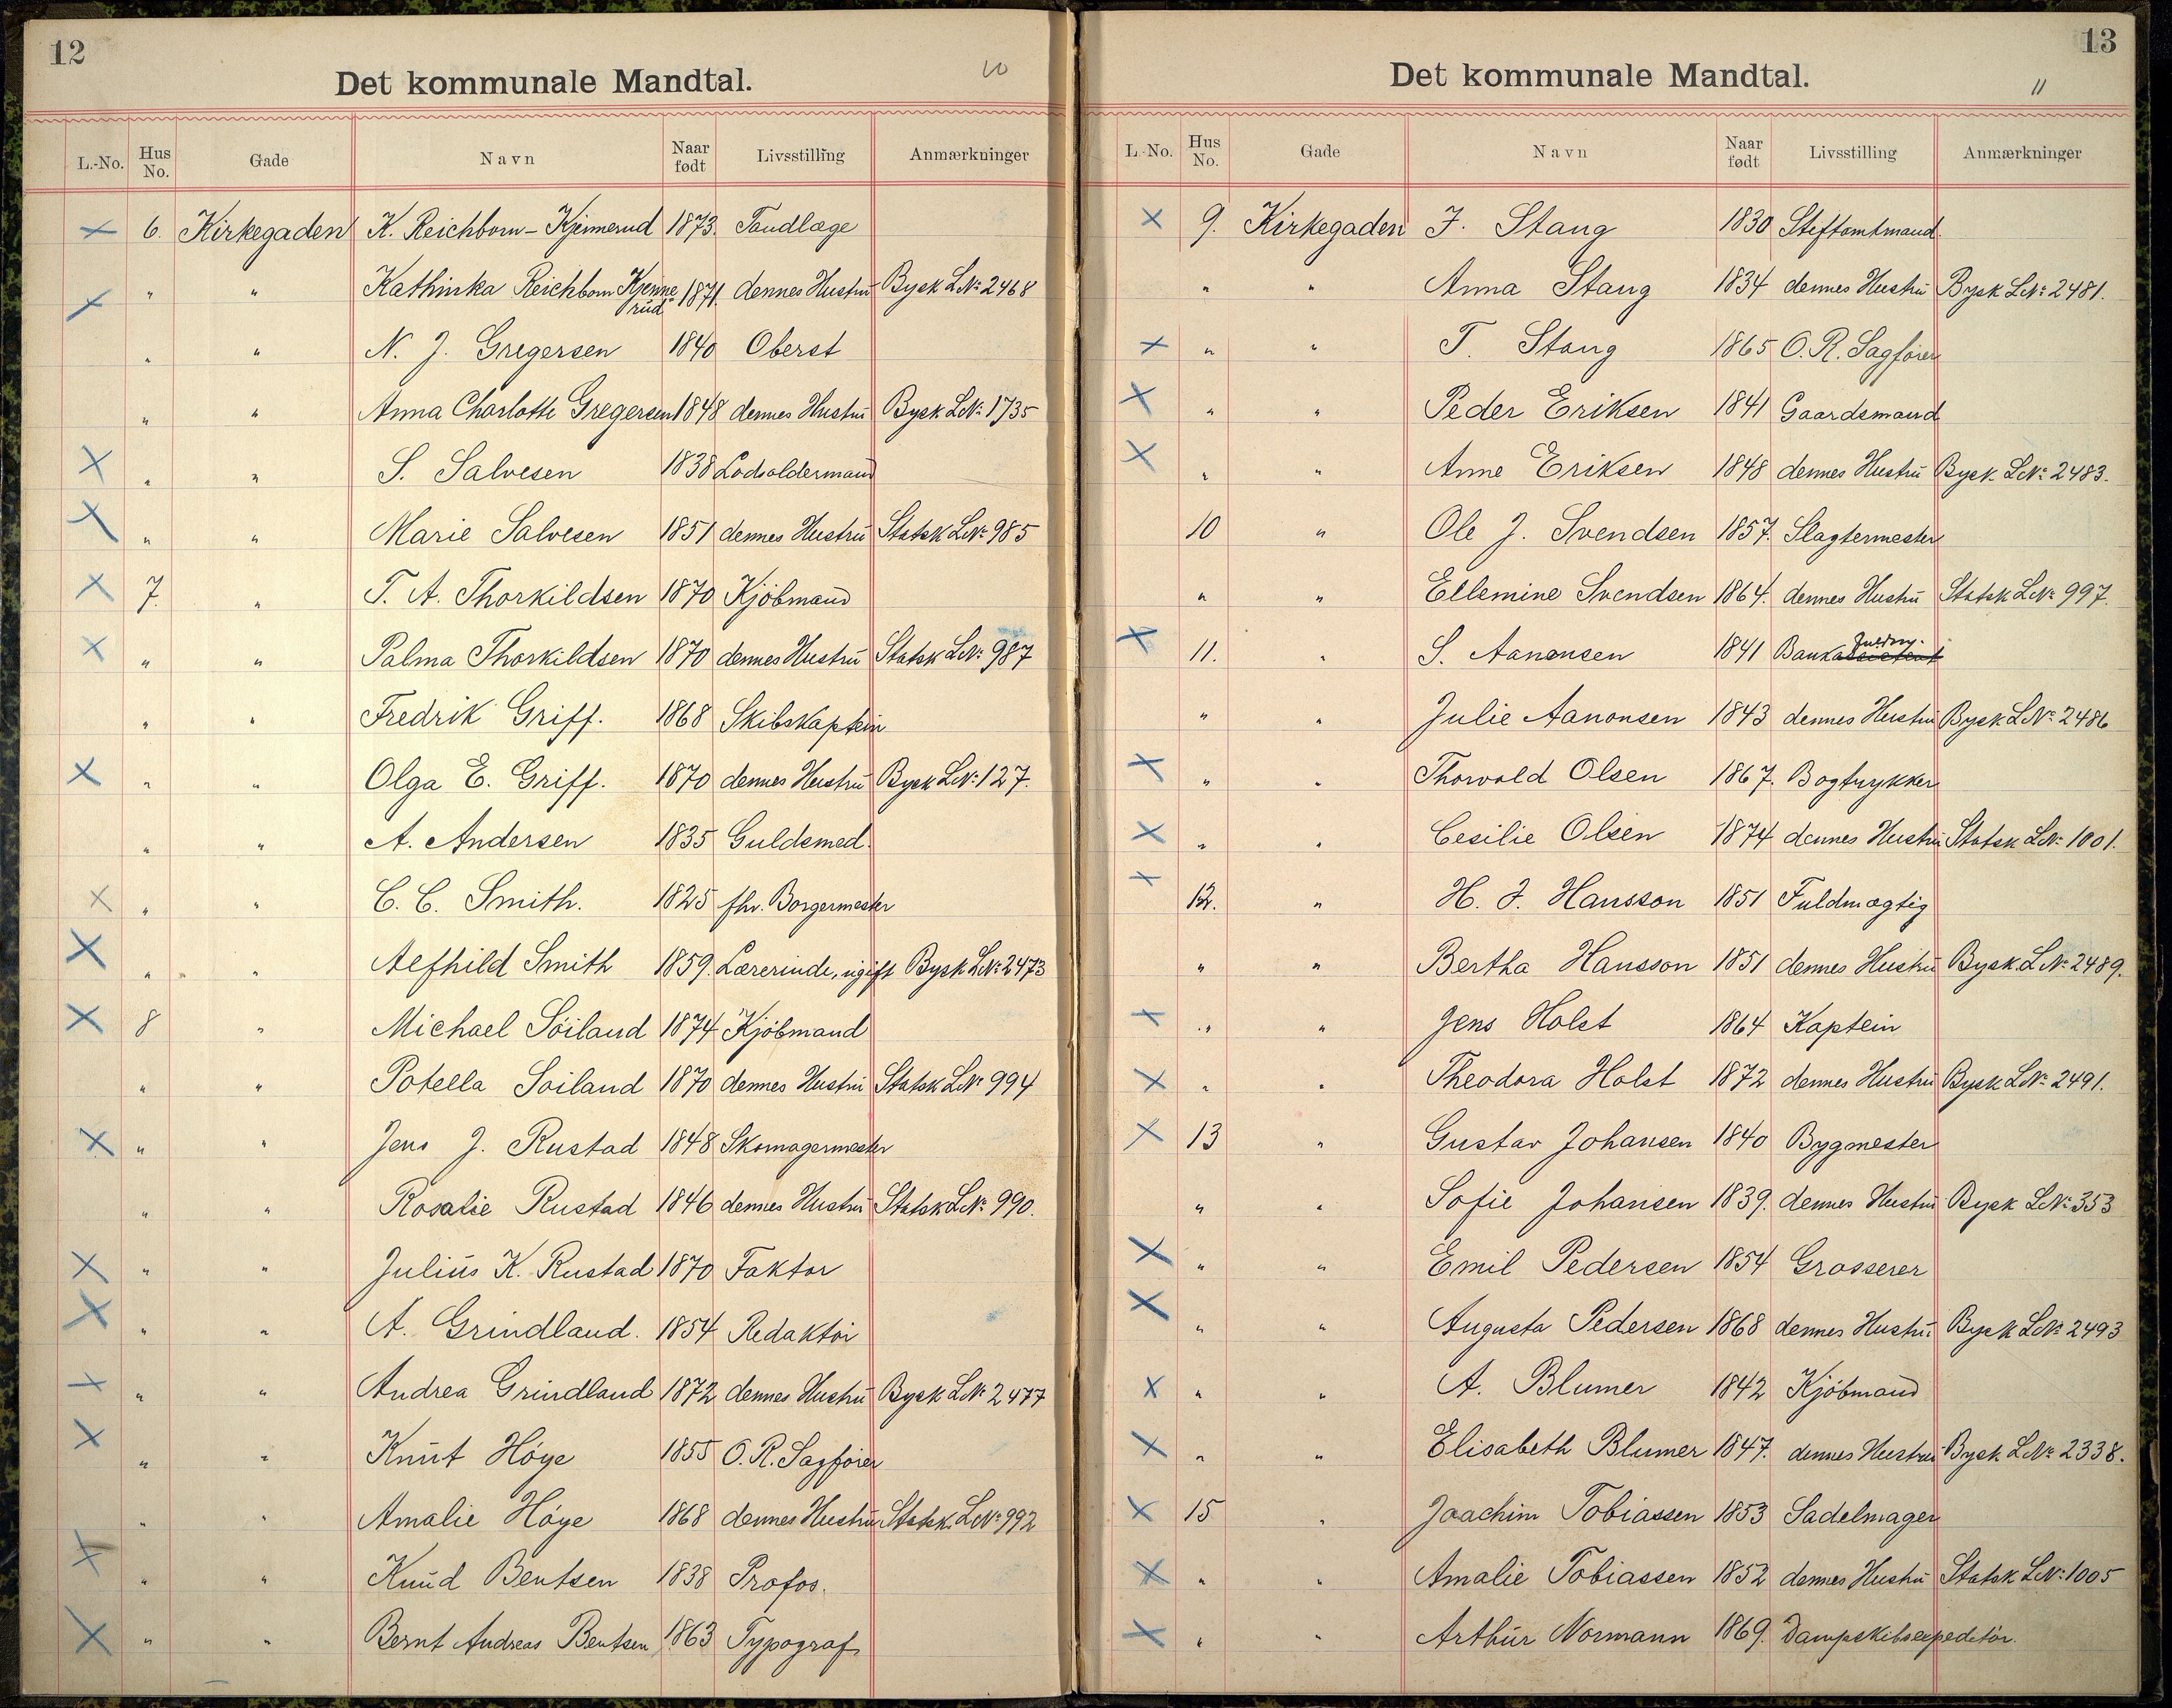 12
Det kommunale Mandtal.
10
L.-No. Hus No. Gade Navn Naar født Livsstilling Anmærkninger
6. Kirkegaden K. Reichborn-Kjennerud 1873. Tandlæge
" " Kathinka Reichborn Kjennerud 1871. dennes Hustru Bysk L№ 2468
" " N. J. Gregersen 1840 Oberst
" " Anna Charlotte Gregersen 1848 dennes Hustru Bysk L№ 1735
" " S. Salvesen 1838 Lodsoldermand
" " Marie Salvesen 1851 dennes Hustru Statsk L№ 985
7. " T. A. Thorkildsen 1870 Kjöbmand
" " Palma Thorkildsen 1870 dennes Hustru Statsk L№ 987
" " Fredrik Griff. 1868 Skibskaptein
" " Olga E. Griff. 1870 dennes Hustru Bysk L№ 127.
" " A. Andersen 1835 Guldsmed.
" " C. C. Smith. 1825 fhv. Borgermester
" " Aefhild Smith 1859. Lærerinde, ugift Bysk L№ 2473
8 " Michael Söiland 1874 Kjöbmand
" " Potella Soiland 1870 dennes Hustru Statsk L№ 994
" " Jens J. Rustad 1848 Skomagermester
" " Rosalie Rustad 1846 dennes Hustru Statsk L№ 990.
" " Julius K. Rustad 1870 Faktor
" " A. Grindland. 1854 Redaktör
" " Andrea Grindland 1872 dennes Hustru Bysk L№ 2477
" " Knut Höye 1855 O.R. Sagförer
" " Amalie Höye 1868 dennes Hustru Statsk. L№ 992
" " Knud Bentsen 1838 Profos.
" " Bernt Andreas Bentsen 1863 Typograf
13
Det kommunale Mandtal.
11
L.-No. Hus No. Gade Navn Naar født Livsstilling Anmærkninger
9. Kirkegaden J. Stang 1830 Stiftamtmand.
" " Anna Stang 1834 dennes Hustru Bysk L№ 2481.
" " T. Stang 1865 O.R. Sagförer
" " Peder Eriksen 1841 Gaardsmand
" " Anne Eriksen 1848 dennes Hustru Bysk L№ 2483.
10 " Ole J. Svendsen 1857. Slagtermester
" " Ellemine Svendsen 1864. dennes Hustru Statsk L№ 997.
11. " S. Aanonsen 1841 Bankassistent Fuldm.
" " Julie Aanonsen 1843 dennes Hustru Bysk L№ 2486
" " Thorvald Olsen 1867. Bogtrykker
" " Cesilie Olsen 1874 dennes Hustru Statsk L№ 1001.
12. " H. J. Hansson 1851 Fuldmægtig
" " Bertha Hansson 1851 dennes Hustru Bysk. L№ 2489.
" " Jens Holst 1864 Kaptein
" " Theodora Holst 1872 dennes Hustru Bysk L№ 2491.
13 " Gustav Johansen 1840 Bygmester
" " Sofie Johansen 1839. dennes Hustru Bysk L№ 353
" " Emil Pedersen 1854 Grosserer
" " Augusta Pedersen 1868 dennes Hustru Bysk L№ 2493
" " A. Blumer 1842 Kjöbmand
" " Elisabeth Blumer 1847. dennes Hustru Bysk L№ 2338.
15 " Joachim Tobiassen 1853 Sadelmager
" " Amalie Tobiassen 1852 dennes Hustru Statsk L№ 1005
" " Arthur Normann 1869. Dampskibsexpeditör.